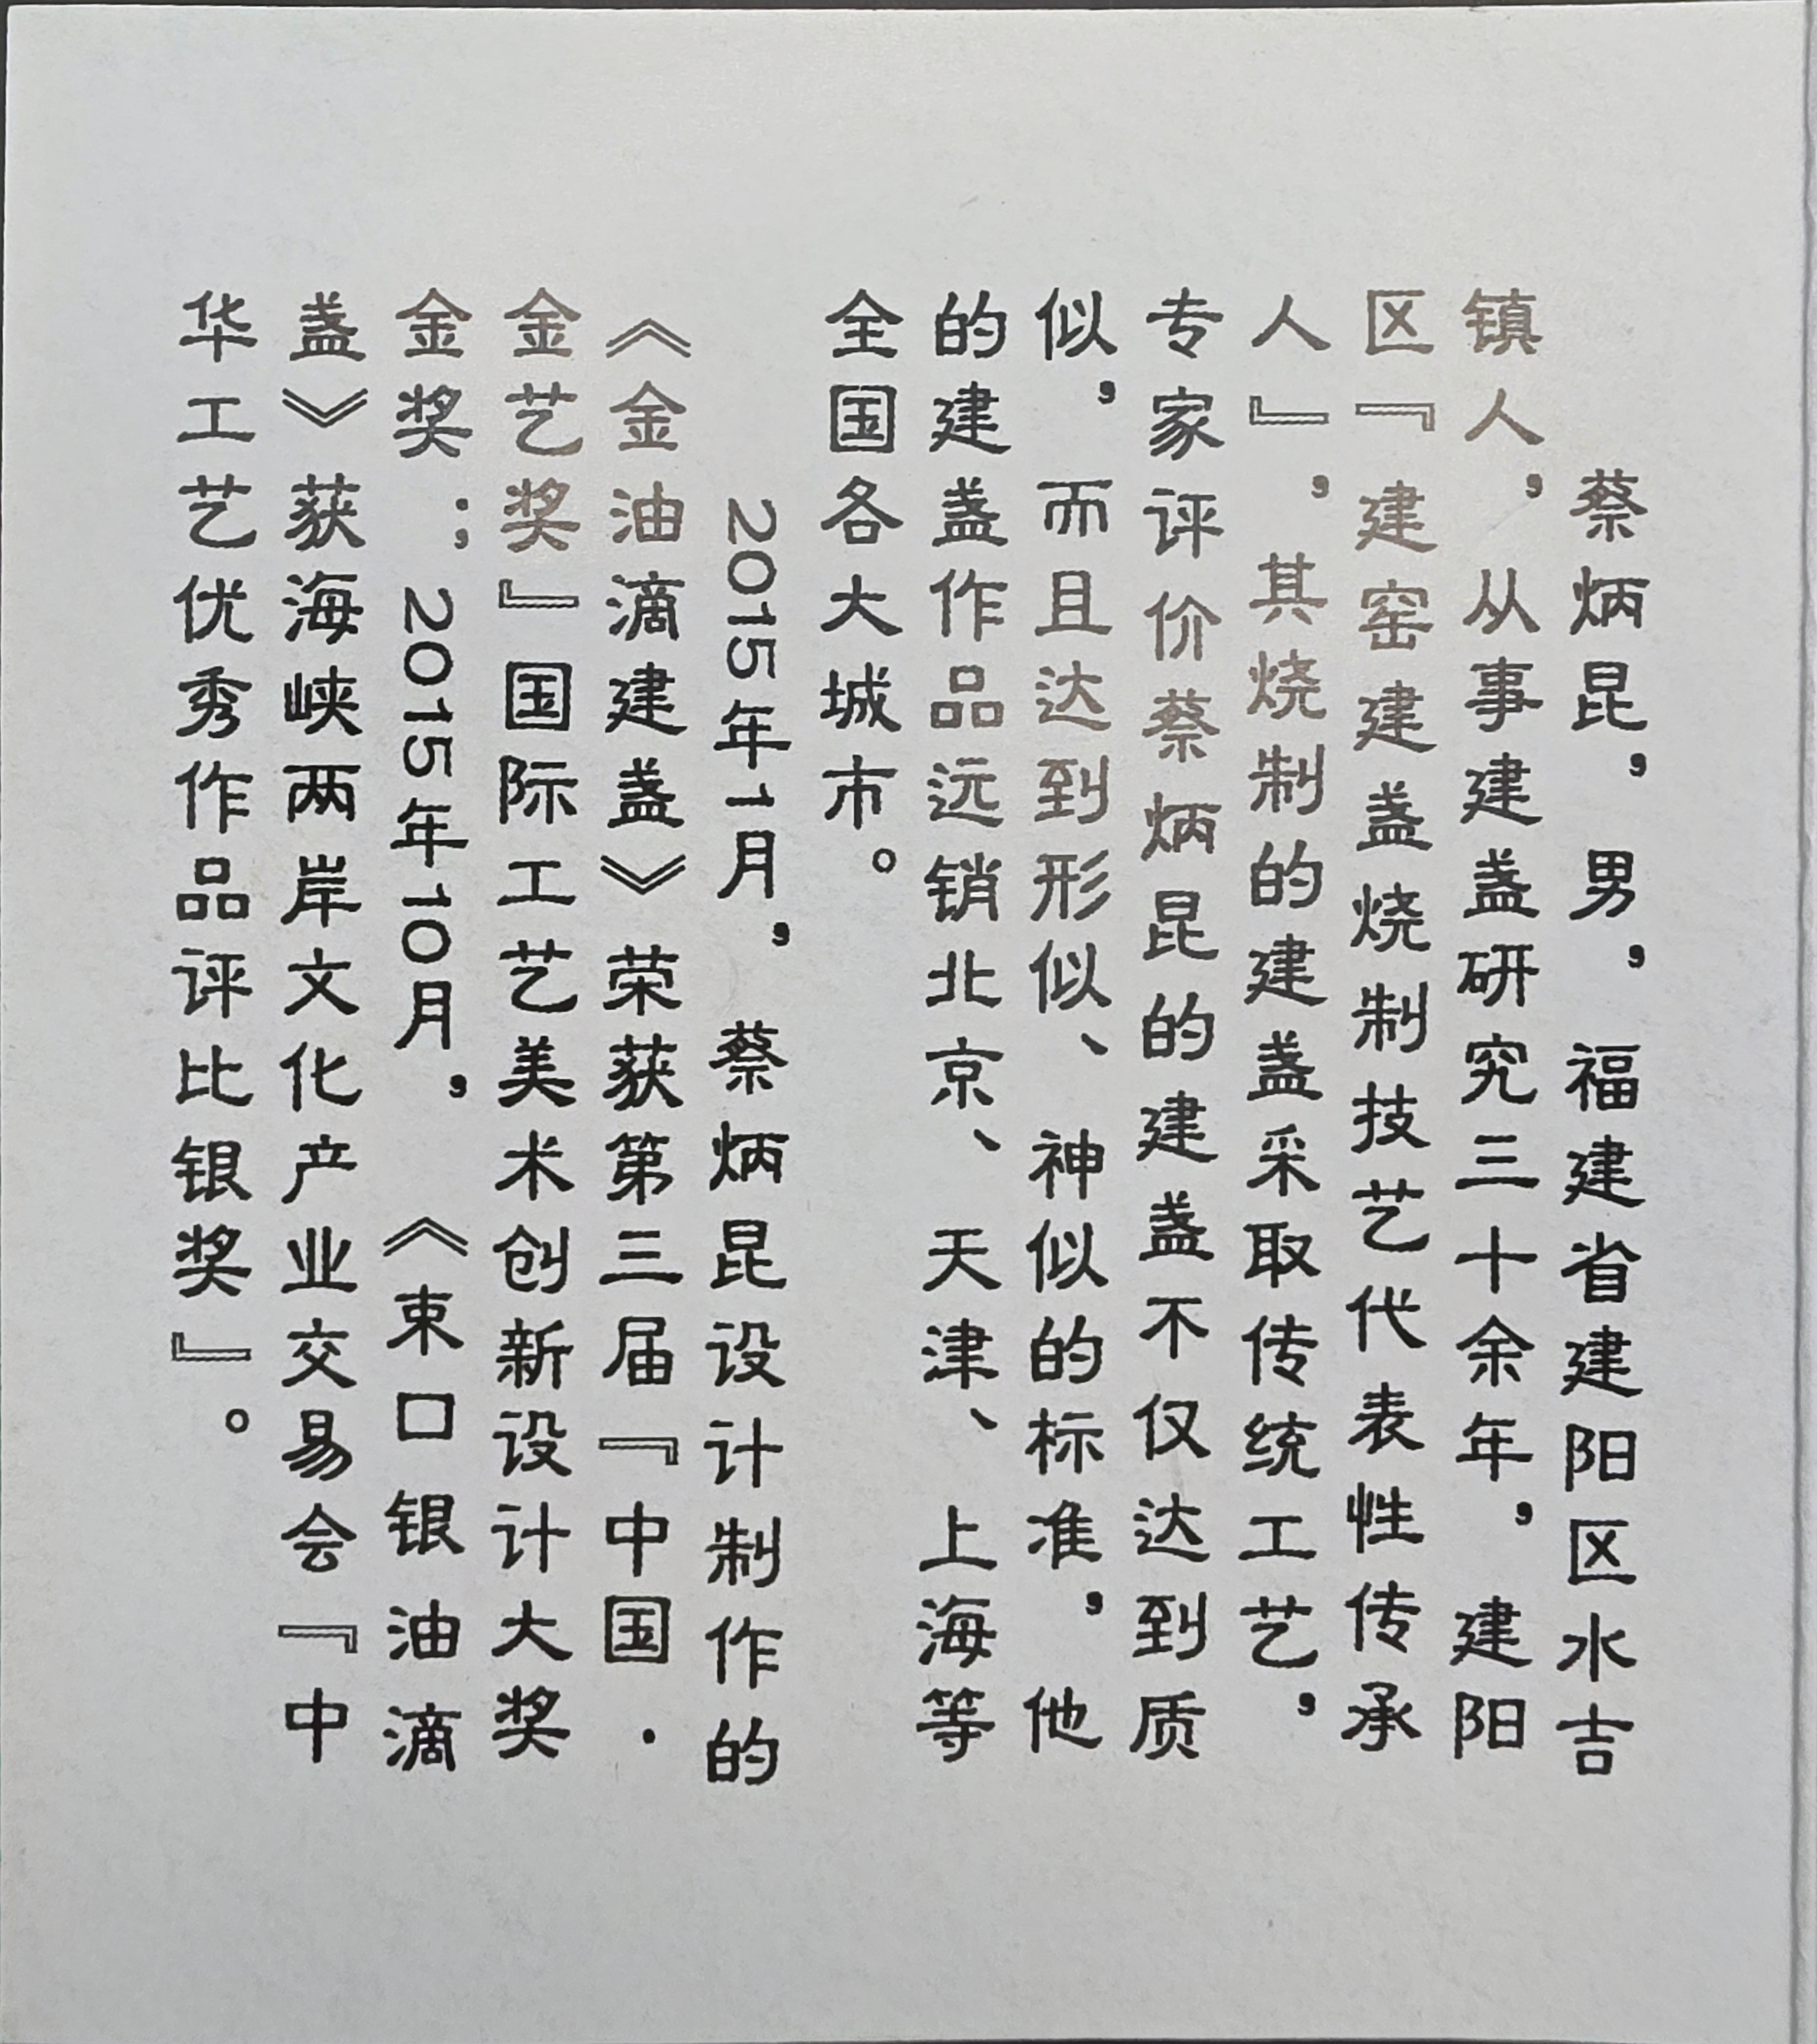 蔡炳昆，男，福建省建阳区水吉
镇人，从事建盏研究三十余年，建阳
区『建窑建盏烧制技艺代表性传承
人』，其烧制的建盏采取传统工艺，
专家评价蔡炳昆的建盏不仅达到质
似，而且达到形似、神似的标准，他
的建盏作品远销北京、天津、上海等
全国各大城市。
2015年1月，蔡炳昆设计制作的
《金油滴建盏》荣获第三届『中国·
金艺奖』国际工艺美术创新设计大奖
金奖；2015年10月，《束口银油滴
盏》获海峡两岸文化产业交易会『中
华工艺优秀作品评比银奖』。